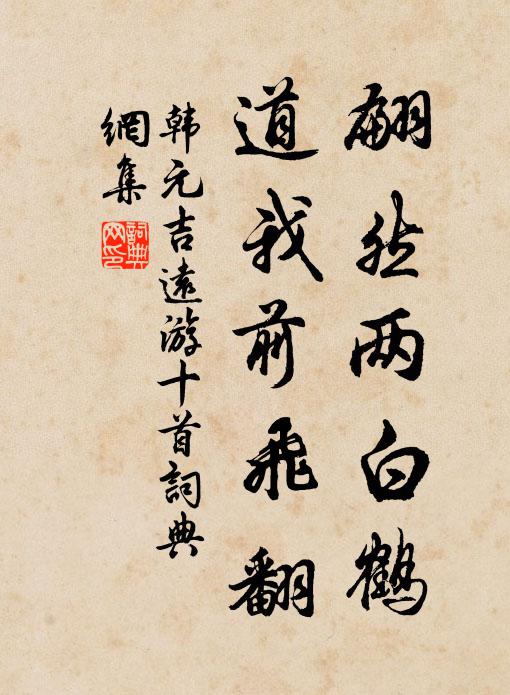 翩然两白鹤
道我前飛翻
韩元吉遠游十首詞典
網集
詞典
网印